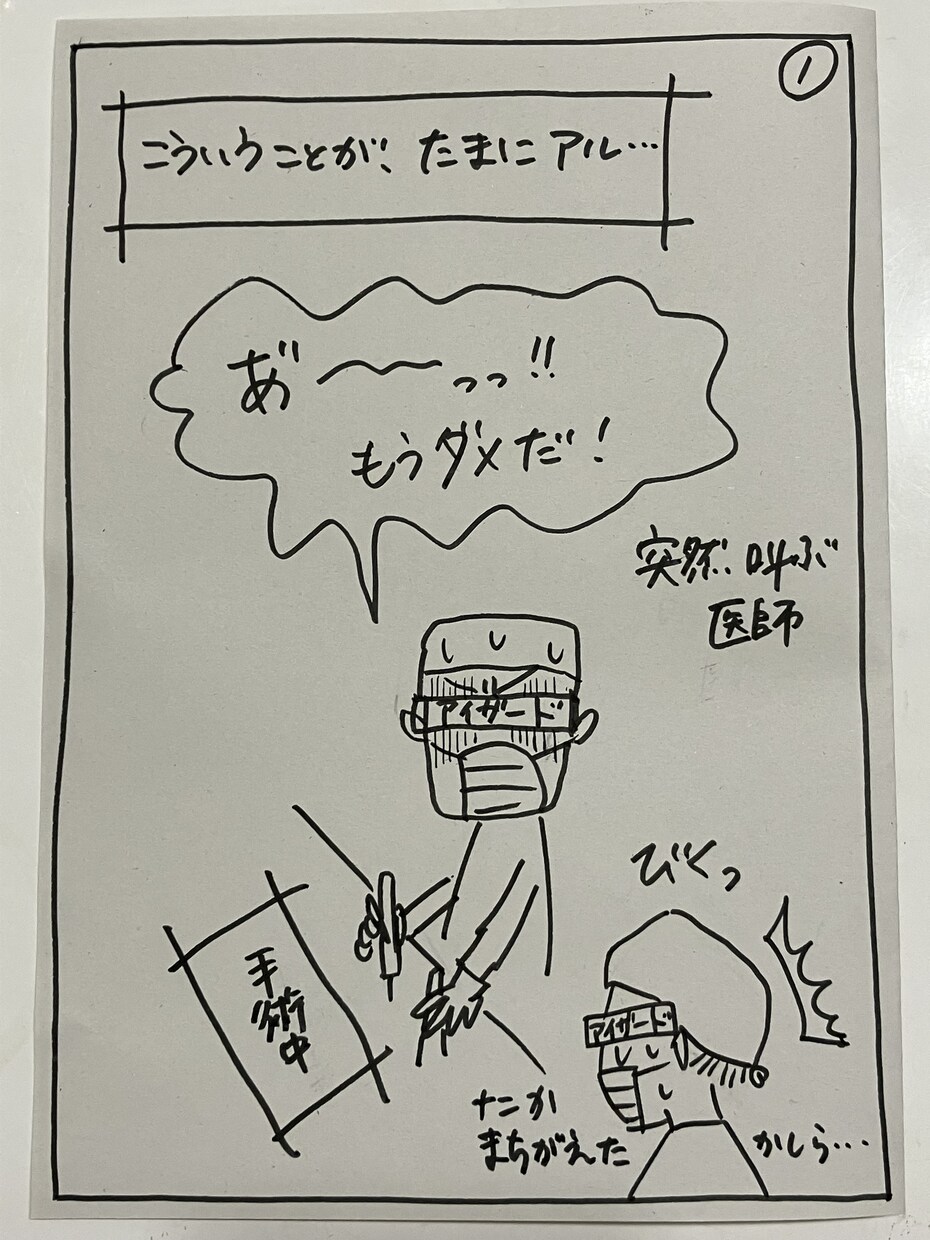 ①
こういうことが、たまにアル…
あ゛〜〜っっ!!
もうダメだ!
突然叫ぶ
医師
アイガード
びくっ
手術中
アイガード
なにか
まちがえた
かしら…